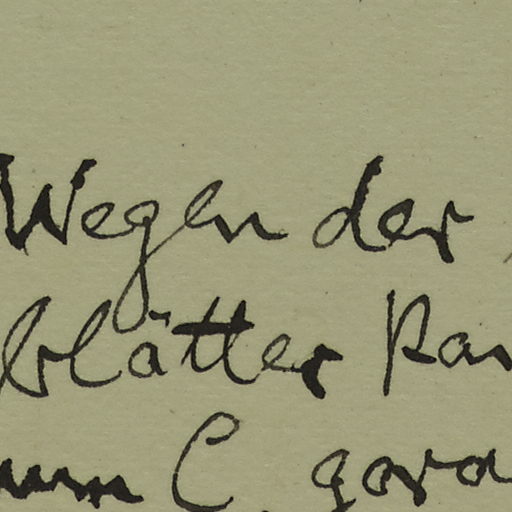 Wegen der
blätter kan
um C. gera